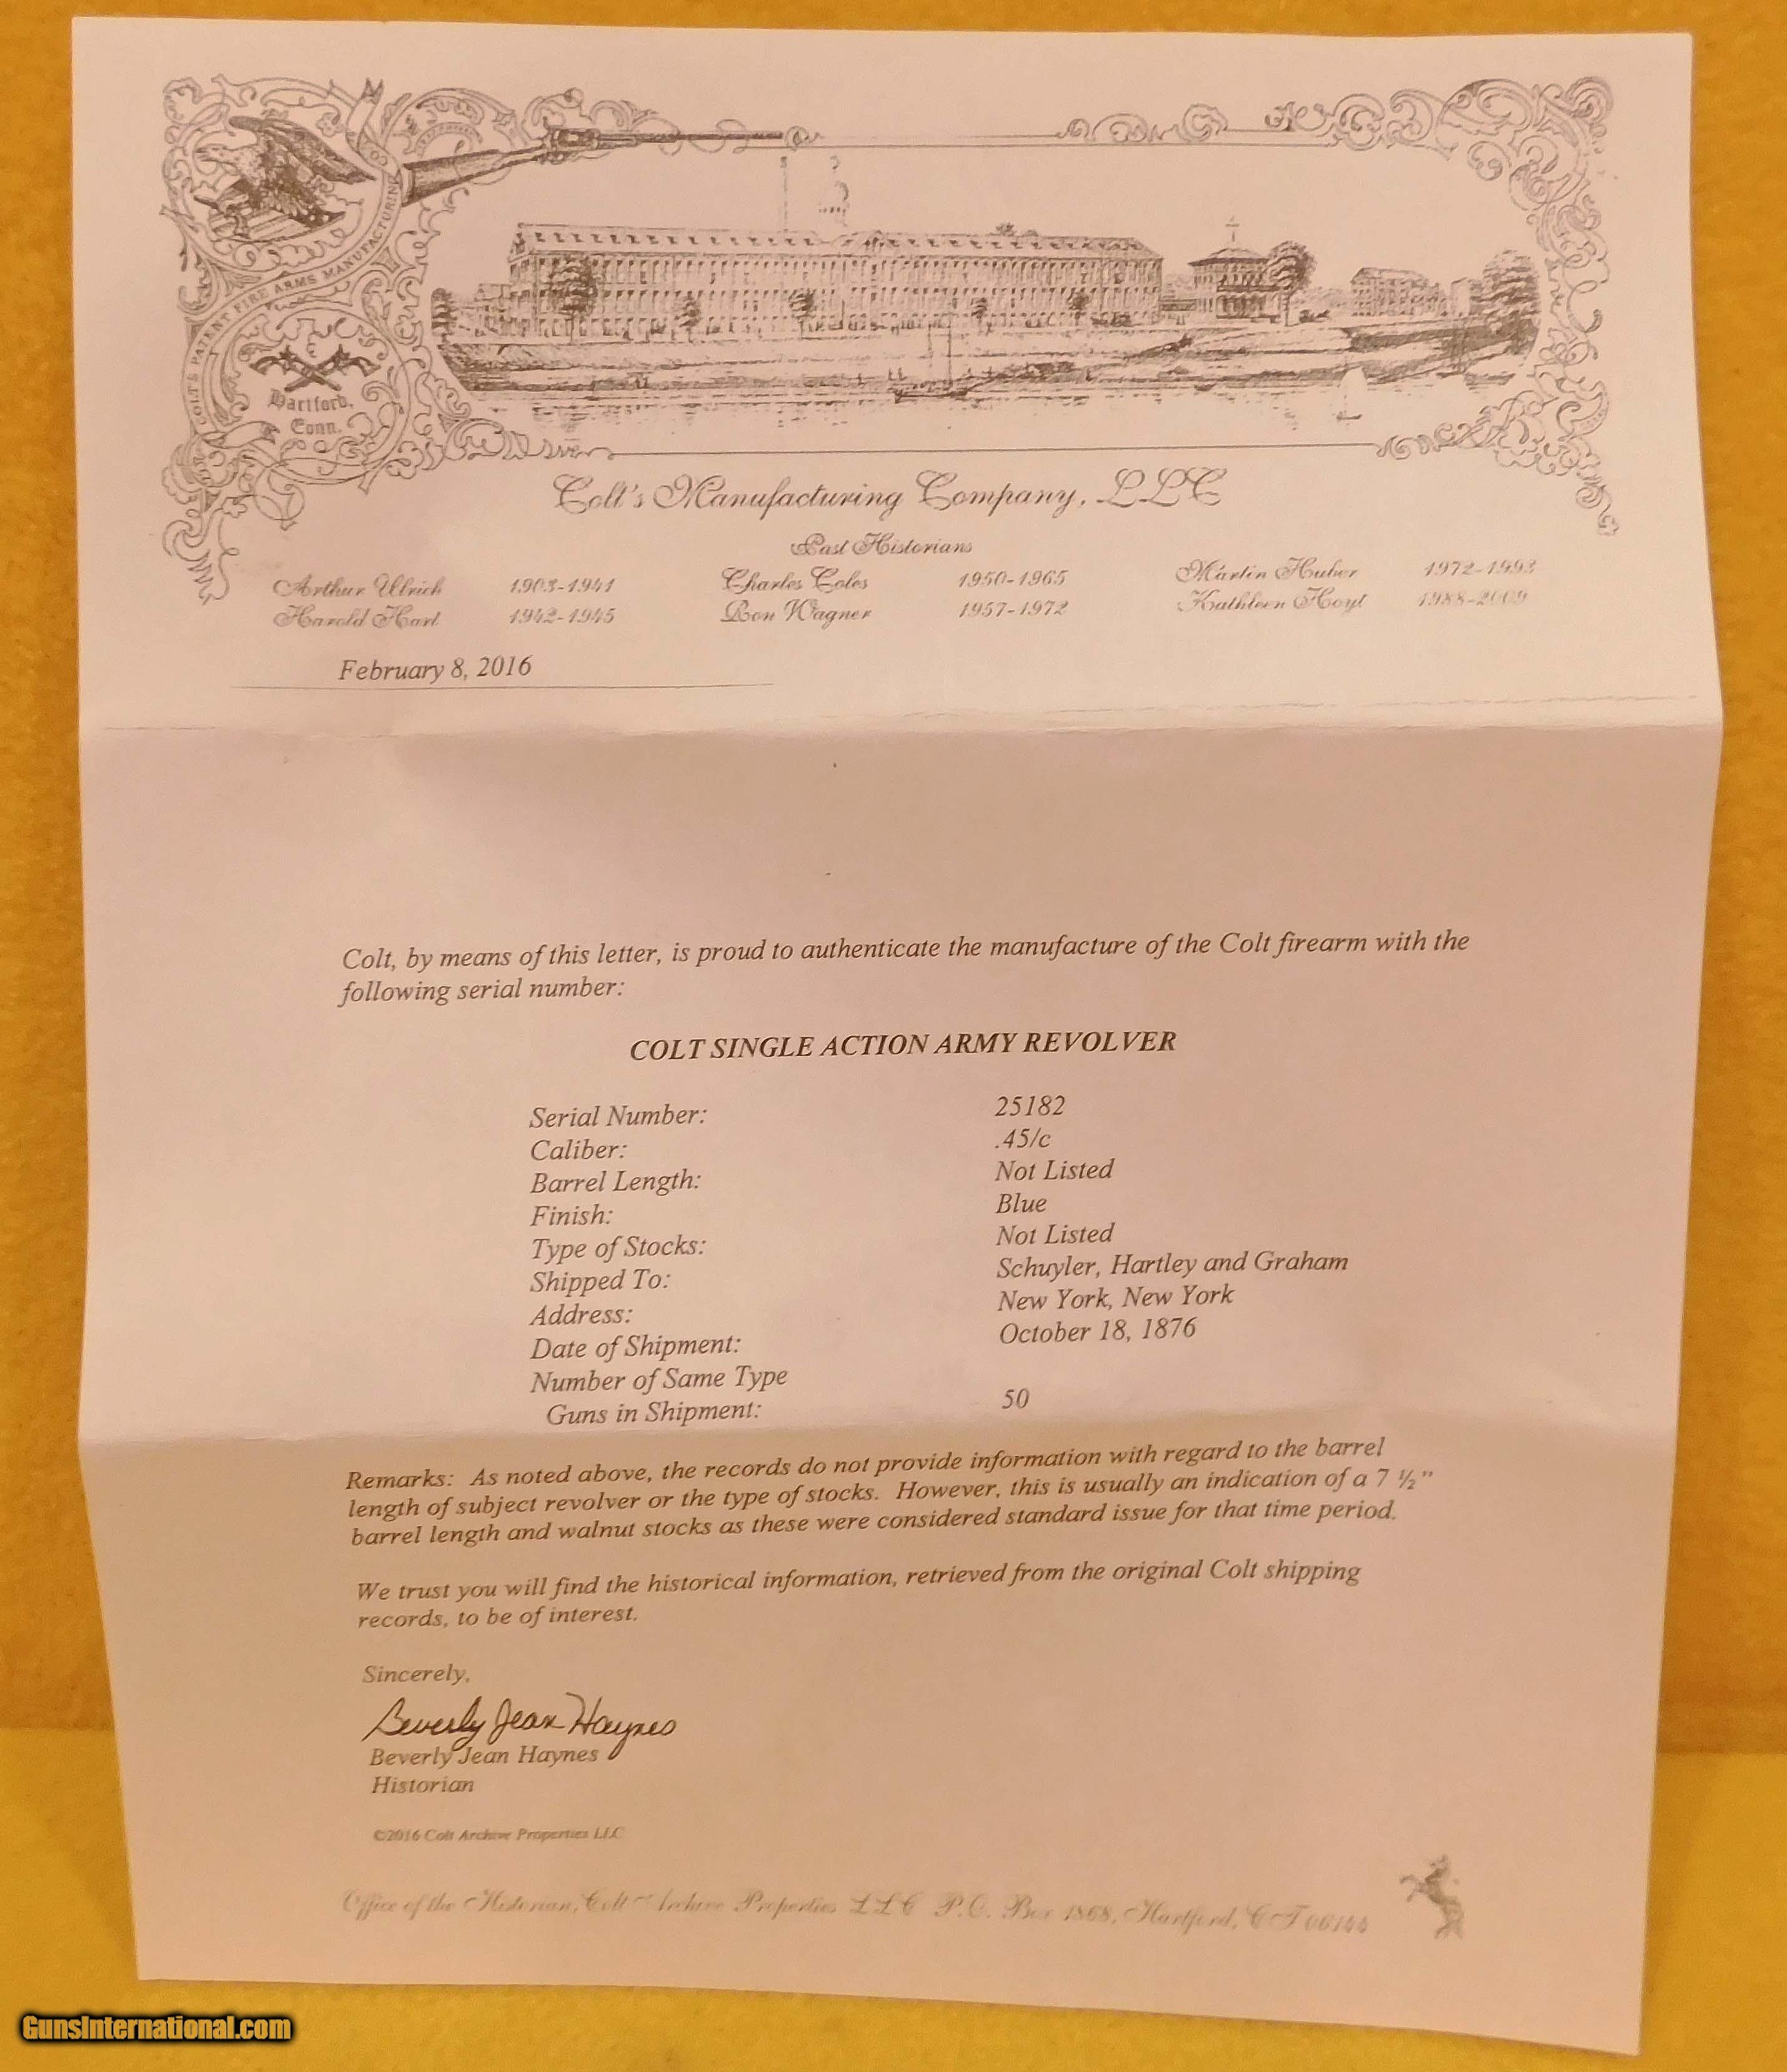 COLT'S PATENT FIRE ARMS MANUFACTURING CO.
Hartford,
Conn.
Colt's Manufacturing Company, LLC
Past Historians
Arthur Ulrich 1903-1941 Charles Coles 1950-1965 Martin Huber 1972-1993
Harold Hart 1942-1945 Ron Wagner 1957-1972 Kathleen Hoyt 1988-2009
February 8, 2016
Colt, by means of this letter, is proud to authenticate the manufacture of the Colt firearm with the
following serial number:
COLT SINGLE ACTION ARMY REVOLVER
Serial Number: 25182
Caliber: .45/c
Barrel Length: Not Listed
Finish: Blue
Type of Stocks: Not Listed
Shipped To: Schuyler, Hartley and Graham
Address: New York, New York
Date of Shipment: October 18, 1876
Number of Same Type
Guns in Shipment: 50
Remarks: As noted above, the records do not provide information with regard to the barrel
length of subject revolver or the type of stocks. However, this is usually an indication of a 7 ½"
barrel length and walnut stocks as these were considered standard issue for that time period.
We trust you will find the historical information, retrieved from the original Colt shipping
records, to be of interest.
Sincerely,
Beverly Jean Haynes
Beverly Jean Haynes
Historian
©2016 Colt Archive Properties LLC
Office of the Historian, Colt Archive Properties LLC P.O. Box 1868, Hartford, CT
GunsInternational.com